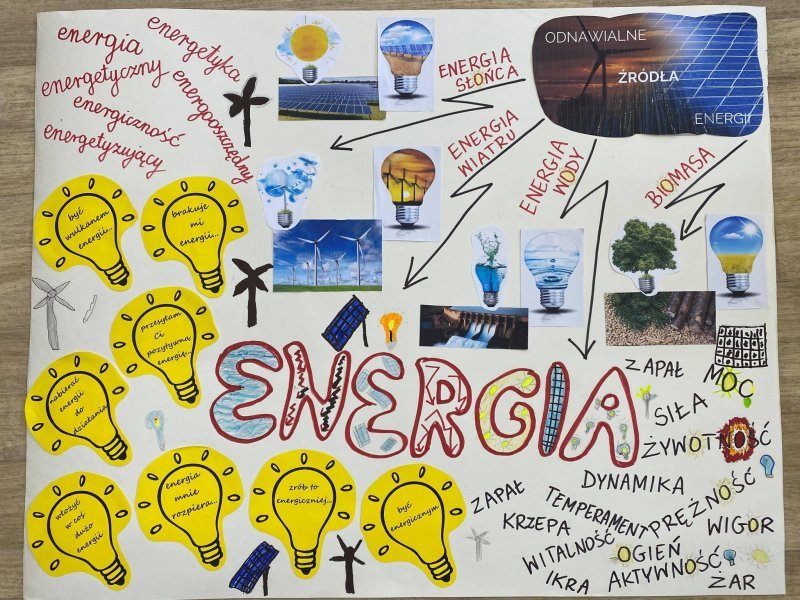 energia
energetyka
energetyczny
energooszczędny
energiczność
energetyzujący
ODNAWIALNE
ŹRÓDŁA
ENERGII
ENERGIA
SŁOŃCA
ENERGIA
WIATRU
ENERGIA
WODY
BIOMASA
być
wulkanem
energii...
brakuje
mi
energii...
przesyłam
Ci
pozytywną
energię...
nabierać
energii
do
działania
włożyć
w coś
dużo
energii
energia
mnie
rozpiera...
zrób to
energiczniej...
być
energicznym
ENERGIA
ZAPAŁ
MOC
SIŁA
ŻYWOTNOŚĆ
DYNAMIKA
ZAPAŁ
TEMPERAMENT
PRĘŻNOŚĆ
KRZEPA
WIGOR
WITALNOŚĆ
OGIEŃ
IKRA
AKTYWNOŚĆ
ŻAR